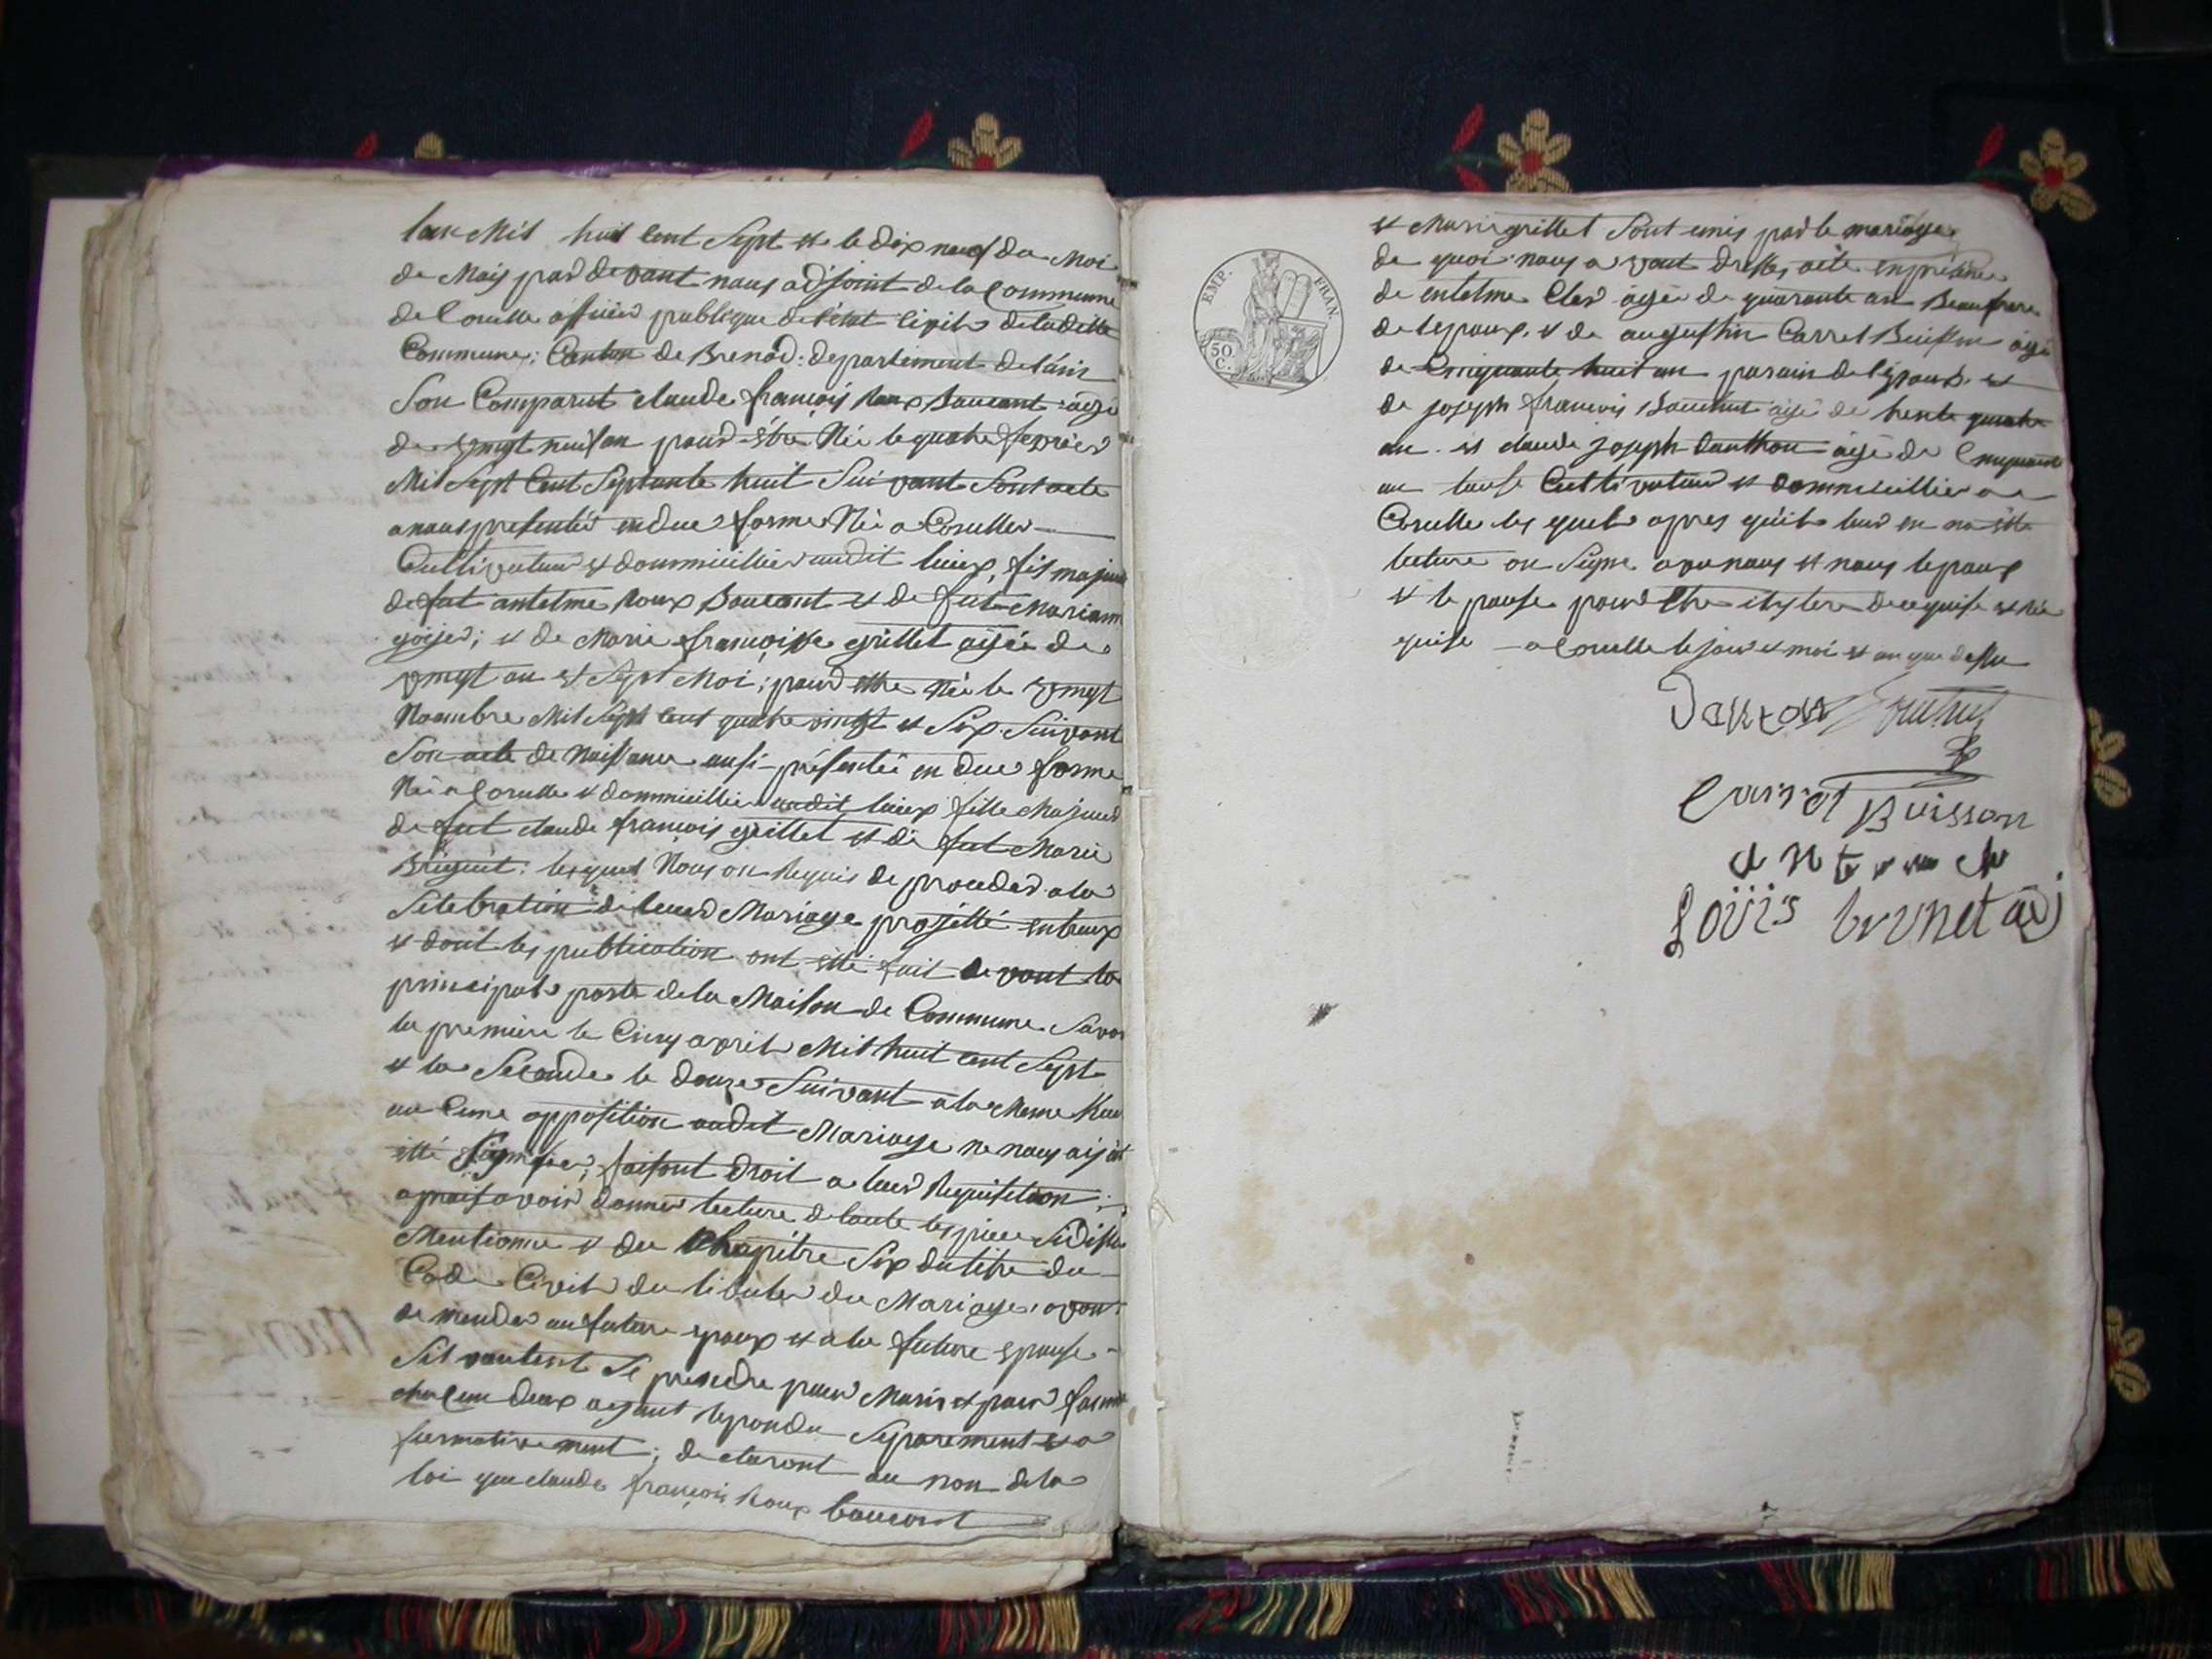 lan Mil huit Cent Sept et le dix neuf du Moi
de Mais par devant nous adjoint de la Commune
de Corcelle officier publique de l'état Civil de ladite
Commune; Canton de Brenod: departement de l'ain
Son Comparut claude françois Roux Baucant âgé
de vingt neuf an pour être Née le quatre fevrier
Mil Sept Cent Septante huit Suivant Son acte
a nous presentér en due forme Née a Corcelles
Cultivateur et dommicillier audit lieux, fils majeur
de fut antelme Roux Baucant et de fut Mariann
et de Marie françoise grillet agée de
vingt an et Sept Moi; pour être Née le vingt
Novembre Mil Sept Cent quatre vingt et Six Suivant
Son acte de Naissance ausi présentée en due forme
Née a Corcelle et dommicillier audit lieux fille Majeur
de fut claude françois grillet et de fut Marie
lesquel Nous on Requis de proceder a la
Selebration de leurs Mariage projetté entreux
et dont les publication ont etté fait devant la
principale porte de la Maison de Commune Savoir
la premiere le Cinq avril Mil huit cent Sept
et la Seconde le douze Suivant a la Meme
au Cune opposition audit Mariage ne nous
etté Signifier, faisant droit a leur Requisition;
apres avoir donner lecture de toute les piece
Mentionne et du Chapitre Six du titre du
Code Civil du Mariage, avon
demender au future epoux et a la future epouse
Sil veulent Se prendre pour Maris et pour famme
chaCun deux ayant repondu Séparement et a
fermativement; declaront au nom de la
loi que claude françois Roux baucant
et Marie grillet Sont unis par le mariage
de quoi nous a vont dresser acte en présence
de entelme Cler agée de quarante an Beaufrere
de l'epoux. et de augustin Carrel Buisson âgé
de Cinquante huit an parain de l'époux. et
de joseph françois agé de trente quatre
an. et claude joseph Danthon âgé de Cinquante
an touse Cultivateur et dommicillier a
Corcelle les quels apres qu'il leur en na etté
lecture on Signe avec nous et nous lepoux
et le pouse pour être de requise
quise a Corcelle le jour et moi et an que dessu
Carret Buisson
Loüis brunet adj
EMP. FRAN.
50
C.